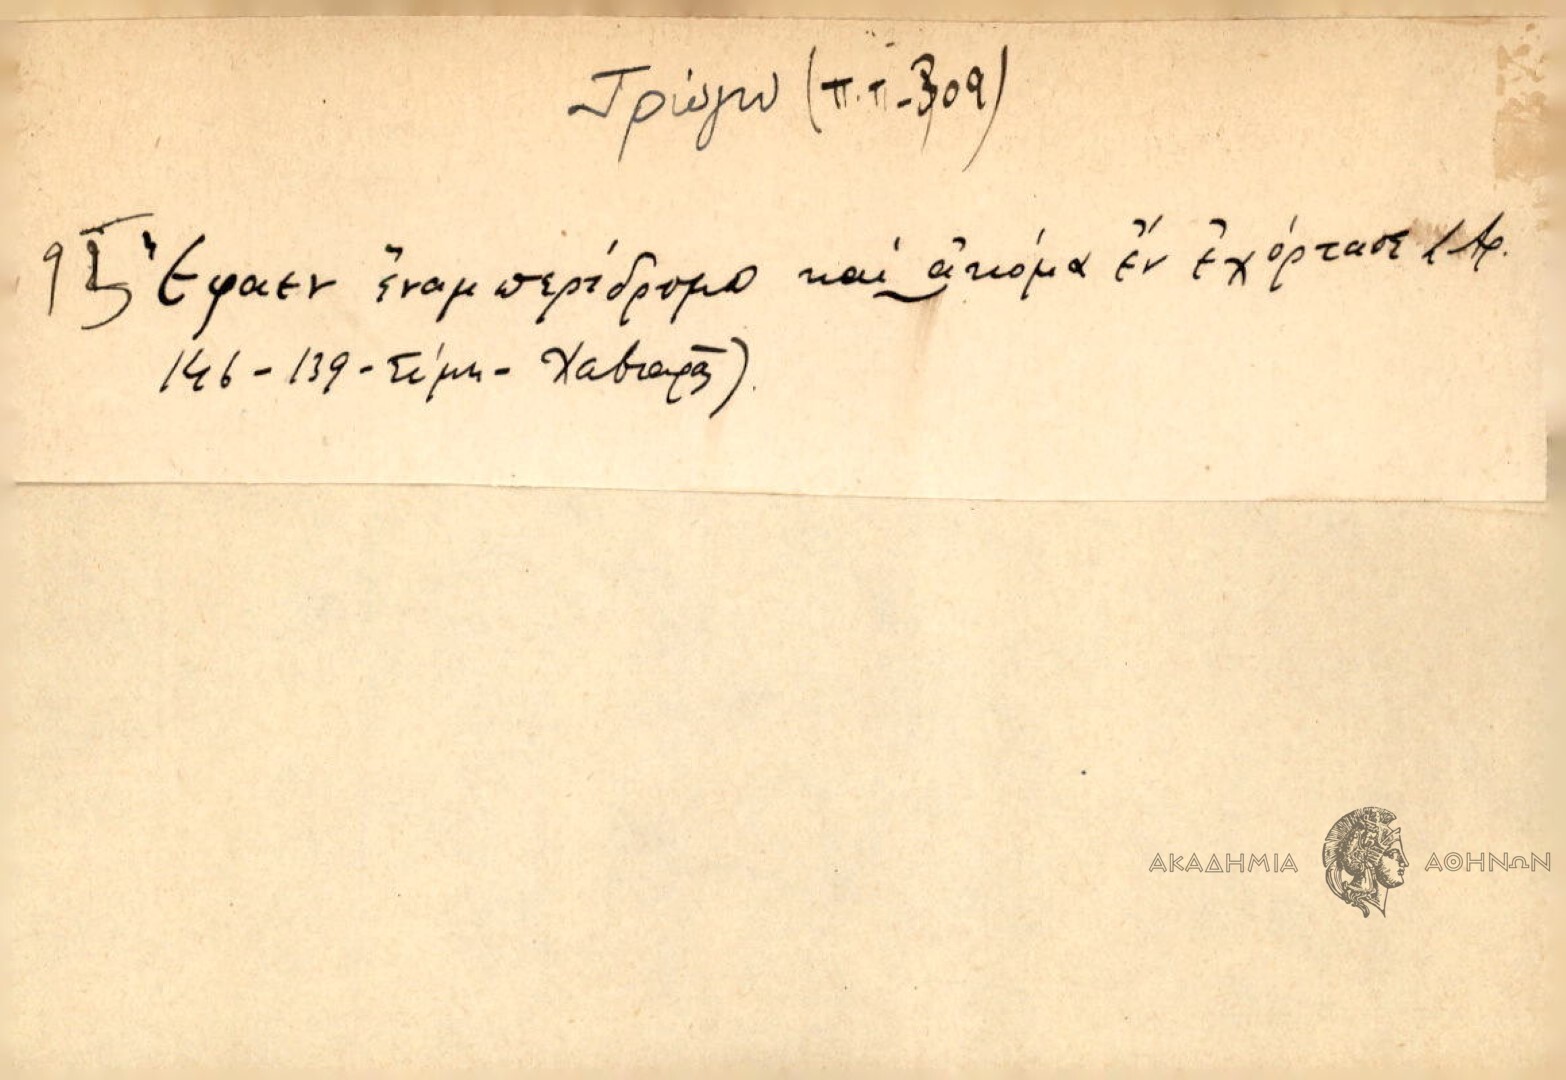 Τρώγω (π.π-309)
95 Ἔφαεν ἕναμ περίδρομο καὶ ἀκόμα ἒν ἐχόρτασε (Ἀρ.
146-139-Σύμη-Χαβιαρᾶς).
ΑΚΑΔΗΜΙΑ ΑΘΗΝΩΝ